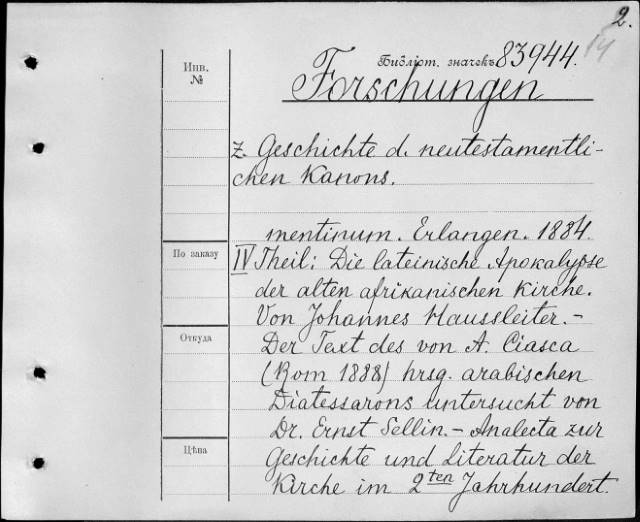 2.
14
Библіот. значекъ 83944.
Инв.
№
Forschungen
z. Geschichte d. neutestamentli-
chen Kanons.
mentinum. Erlangen. 1884.
По заказу
IV Theil: Die lateinische Apokalypse
der alten afrikanischen Kirche.
Von Johannes Haussleiter. -
Откуда
Der Text des von A. Ciasca
(Rom 1888) hrsg. arabischen
Diatessarons untersucht von
Dr. Ernst Sellin. - Analecta zur
Цѣна
Geschichte und Literatur der
Kirche im 2ten Jahrhundert.